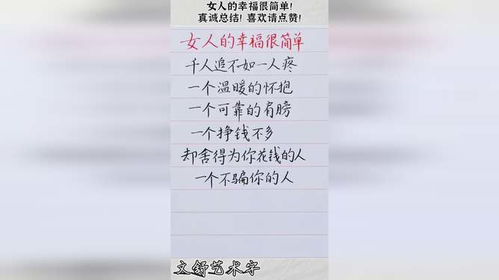 女人的幸福很简单!
真诚总结! 喜欢请点赞!
女人的幸福很简单
千人追不如一人疼
一个温暖的怀抱
一个可靠的肩膀
一个挣钱不多
却舍得为你花钱的人
一个不骗你的人
文舒艺术字